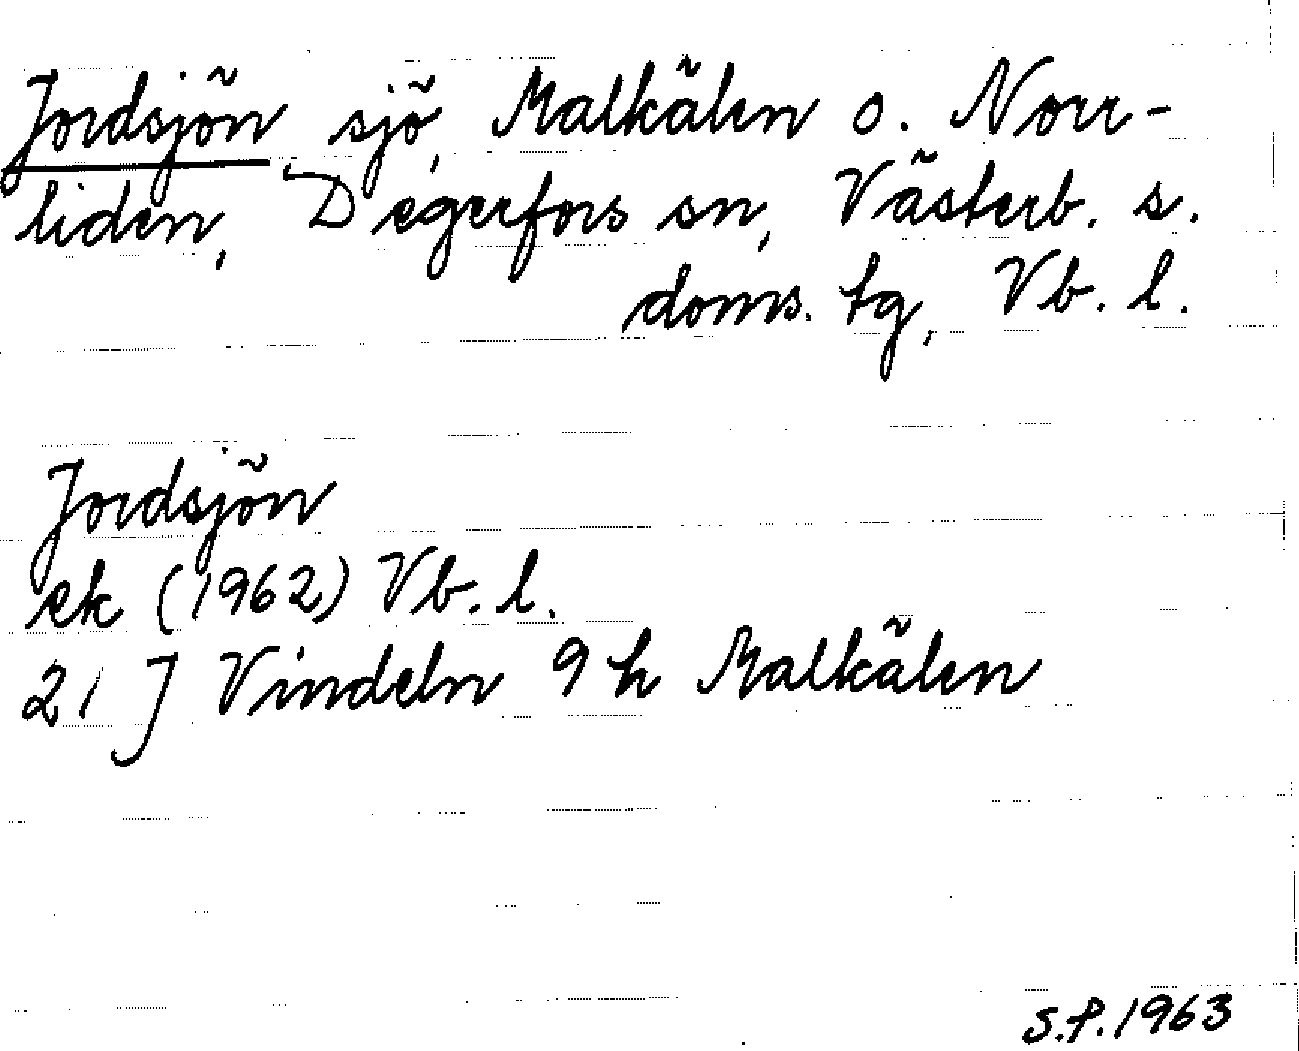 Jordsjön sjö, Malkälen o. Norr-
liden, Degerfors sn, Västerb. s.
doms. tg, Vb. l.
Jordsjön
ek (1962) Vb. l.
21 J Vindeln 9 h Malkälen
S.P. 1963